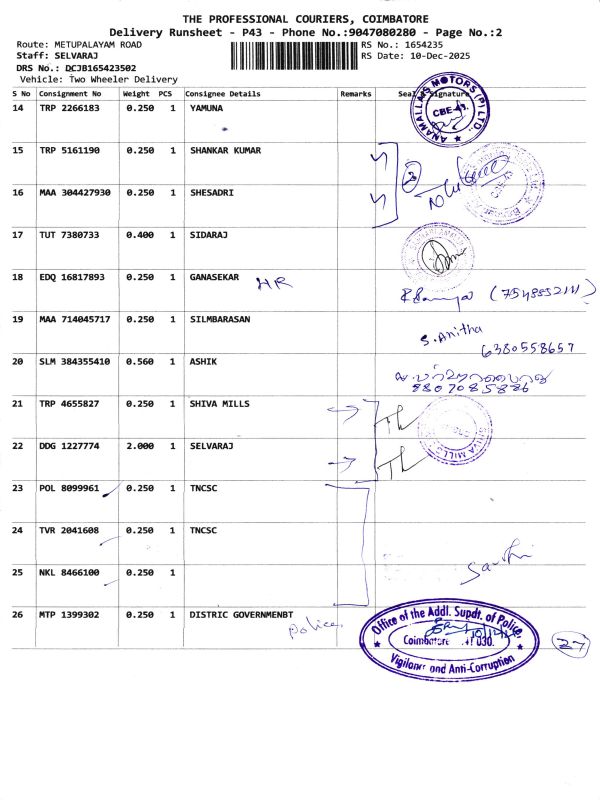 THE PROFESSIONAL COURIERS, COIMBATORE
Delivery Runsheet - P43 - Phone No.:9047080280 - Page No.:2
Route: METUPALAYAM ROAD
RS No.: 1654235
Staff: SELVARAJ
RS Date: 10-Dec-2025
DRS No.: DCJB165423502
Vehicle: Two Wheeler Delivery
S No Consignment No Weight PCS Consignee Details Remarks Seal Signature
14 TRP 2266183 0.250 1 YAMUNA
ANAMALLAIS MOTORS (P) LTD.,
CBE-43.
15 TRP 5161190 0.250 1 SHANKAR KUMAR
3
16 MAA 304427930 0.250 1 SHESADRI
17 TUT 7380733 0.400 1 SIDARAJ
18 EDQ 16817893 0.250 1 GANASEKAR HR
19 MAA 714045717 0.250 1 SILMBARASAN
S. Anitha
6380558657
20 SLM 384355410 0.560 1 ASHIK
8807085886
21 TRP 4655827 0.250 1 SHIVA MILLS
SHIVA MILLS
22 DDG 1227774 2.000 1 SELVARAJ
23 POL 8099961 0.250 1 TNCSC
24 TVR 2041608 0.250 1 TNCSC
25 NKL 8466100 0.250 1
26 MTP 1399302 0.250 1 DISTRIC GOVERNMENBT
Police
Office of the Addl. Supdt. of Police,
Coimbatore
Vigilance and Anti-Corruption
27